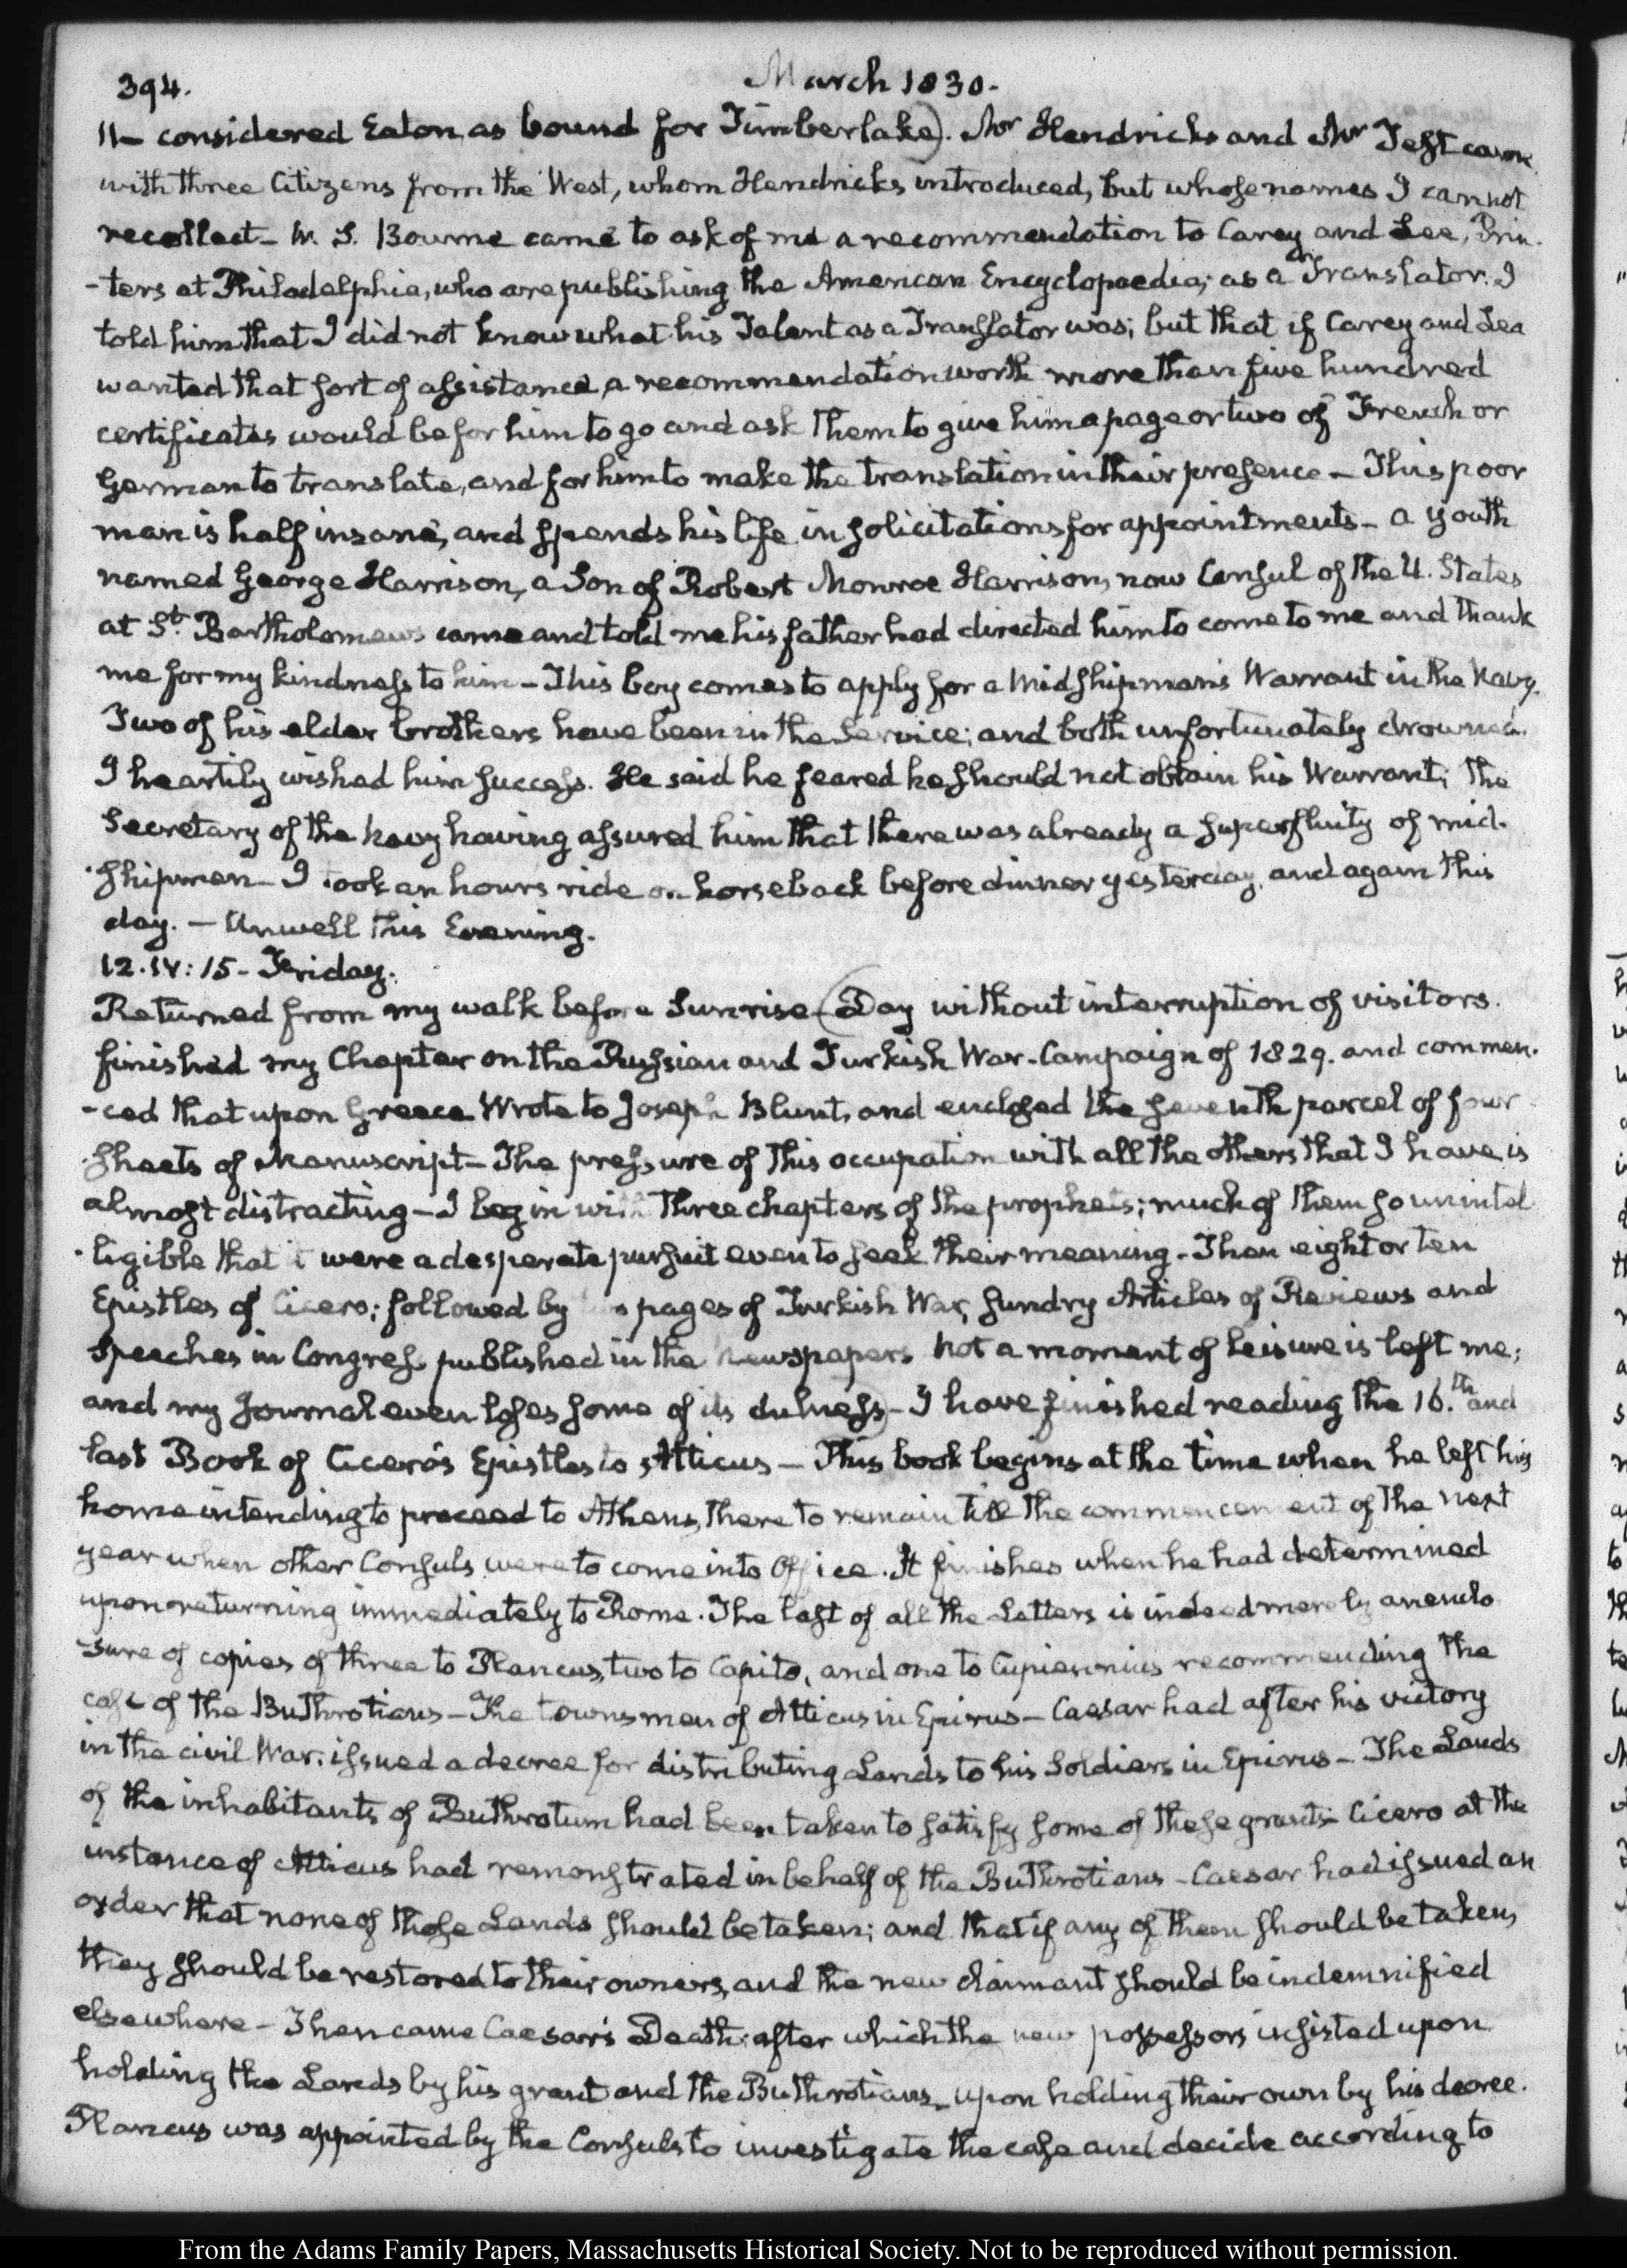 394.
March 1830.
11— considered Eaton as bound for Timberlake). Mr Hendricks and Mr Test came
with three Citizens from the West, whom Hendricks introduced, but whose names I cannot
recollect— W. S. Bourne came to ask of me a recommendation to Carey and Lea, Prin-
-ters at Philadelphia, who are publishing the American Encyclopaedia; as a Translator. I
told him that I did not know what his Talent as a Translator was; but that if Carey and Lea
wanted that sort of assistance, a recommendation worth more than five hundred
certificates would be for him to go and ask them to give him a page or two of French or
German to translate, and for him to make the translation in their presence— This poor
man is half insane, and spends his life in solicitations for appointments— a youth
named George Harrison, a Son of Robert Monroe Harrison, now Consul of the U. States
at St. Bartholomews came and told me his father had directed him to come to me and thank
me for my kindness to him— This boy comes to apply for a Midshipman's Warrant in the Navy.
Two of his elder brothers have been in the Service; and both unfortunately drowned.
I heartily wished him success. He said he feared he should not obtain his Warrant; the
Secretary of the Navy having assured him that there was already a superfluity of mid-
-shipmen— I took an hours ride on horseback before dinner yesterday, and again this
day. — Unwell this Evening.
12. IV: 15— Friday.
Returned from my walk before Sunrise (Day without interruption of visitors.
finished my Chapter on the Russian and Turkish War— Campaign of 1829. and commen-
-ced that upon Greece Wrote to Joseph Blunt, and enclosed the seventh parcel of four
sheets of Manuscript— The pressure of this occupation with all the others that I have is
almost distracting— I begin with three chapters of the prophets; much of them so unintel
-ligible that it were a desperate pursuit even to seek their meaning— Then eight or ten
Epistles of Cicero; followed by pages of Turkish War, sundry Articles of Reviews and
Speeches in Congress published in the newspapers. Not a moment of leisure is left me;
and my Journal even loses some of its dulness)— I have finished reading the 16.th and
last Book of Cicero's Epistles to Atticus— This book begins at the time when he left his
home intending to proceed to Athens, there to remain till the commencement of the next
year when other Consuls were to come into Office. It finishes when he had determined
upon returning immediately to Rome. The last of all the Letters is indeed merely an enclo
-sure of copies of three to Plancus, two to Capito, and one to Cupiennius recommending the
case of the Buthrotians— The townsmen of Atticus in Epirus— Caesar had after his victory
in the civil War, issued a decree for distributing Lands to his Soldiers in Epirus— The Lands
of the inhabitants of Buthrotum had been taken to satisfy some of these grants— Cicero at the
instance of Atticus had remonstrated in behalf of the Buthrotians— Caesar had issued an
order that none of those Lands should be taken; and that if any of them should be taken,
they should be restored to their owners, and the new claimant should be indemnified
elsewhere— Then came Caesar's Death; after which the new possessors insisted upon
holding the Lands by his grant and the Buthrotians— upon holding their own by his decree.
Plancus was appointed by the Consuls to investigate the case and decide according to
From the Adams Family Papers, Massachusetts Historical Society. Not to be reproduced without permission.